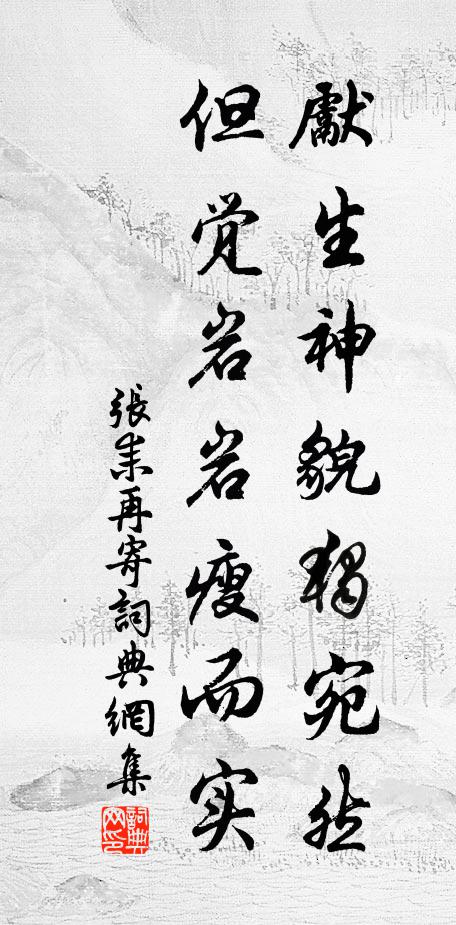 獻生神貌獨宛然
但觉岩岩瘦而实
張耒再寄詞典網集
詞典网印